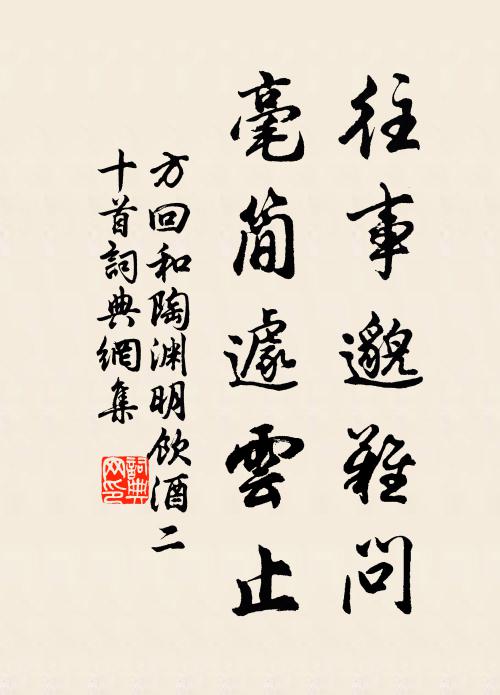 往事邈難問
毫簡遽雲止
方回和陶渊明飲酒二
十首詞典網集
詞典
网印